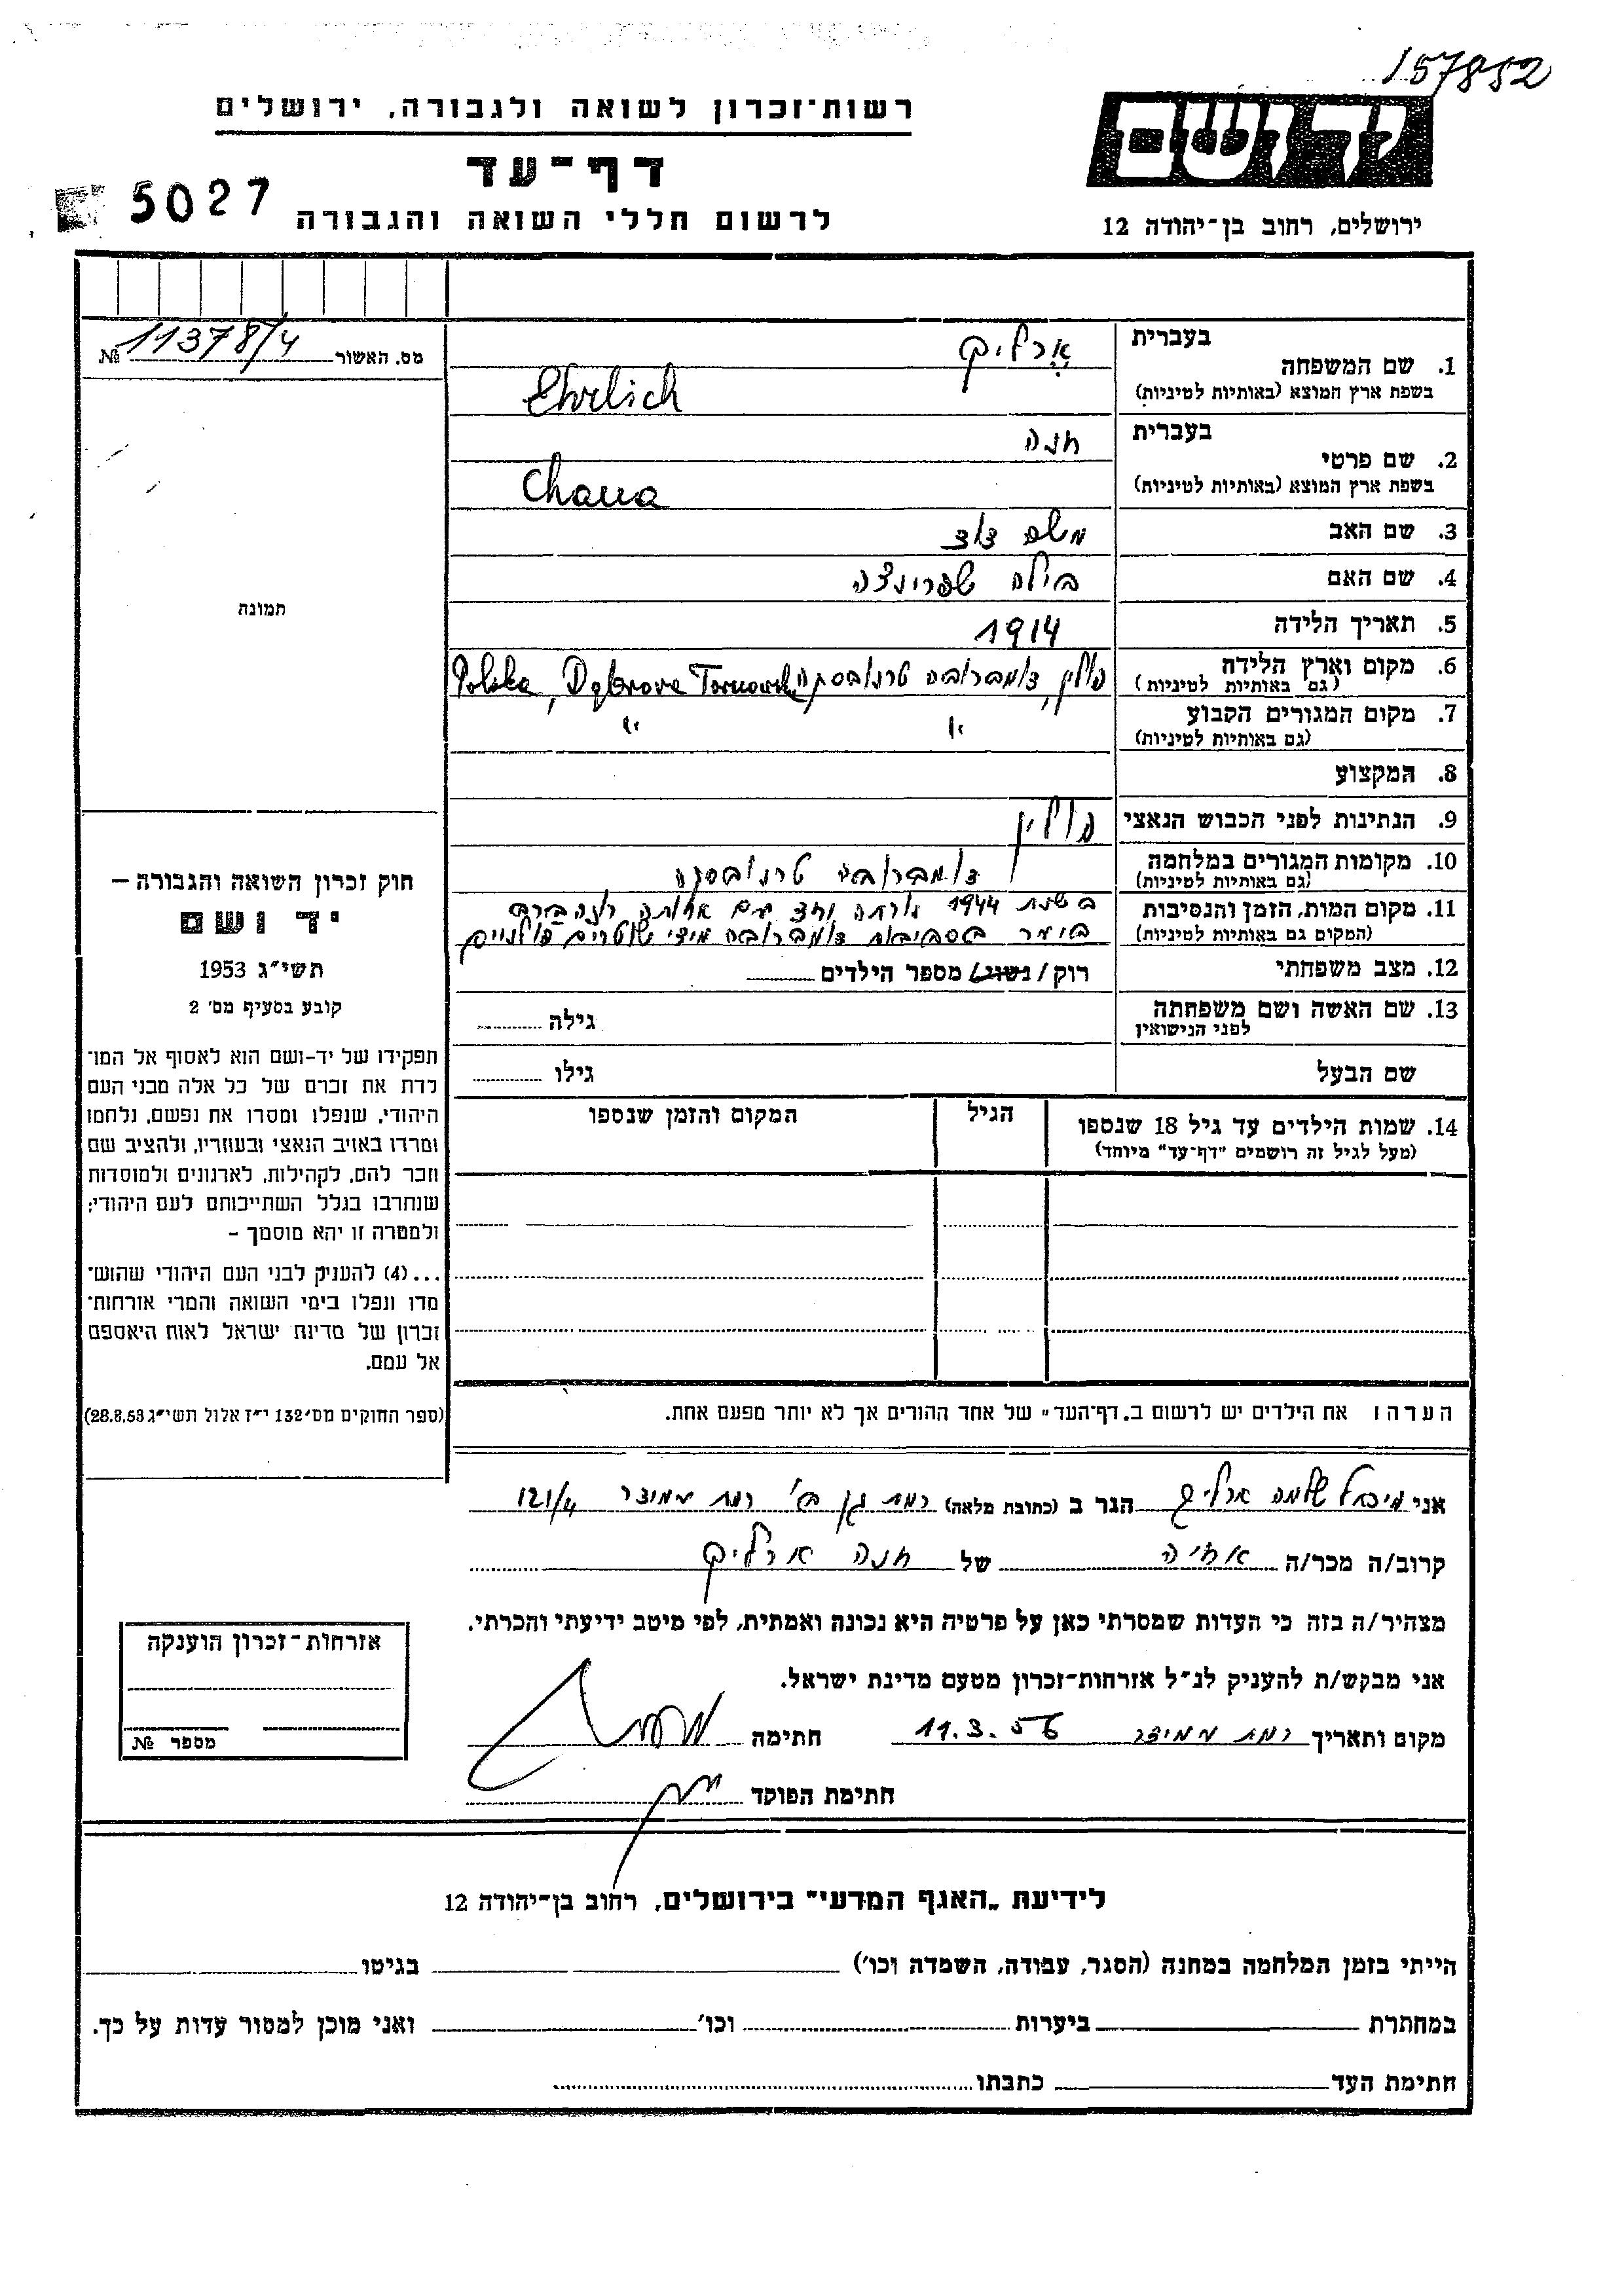 157852
יד ושם
רשות־זכרון לשואה ולגבורה, ירושלים
דף־עד
5027
לרשום חללי השואה והגבורה
ירושלים, רחוב בן־יהודה 12
מס. האשור 11378/4 №
תמונה
חוק זכרון השואה והגבורה –
יד ושם
תשי״ג 1953
קובע בסעיף מס׳ 2
תפקידו של יד-ושם הוא לאסוף אל המו־
לדת את זכרם של כל אלה מבני העם
היהודי, שנפלו ומסרו את נפשם, נלחמו
ומרדו באויב הנאצי ובעוזריו, ולהציב שם
וזכר להם, לקהילות, לארגונים ולמוסדות
שנחרבו בגלל השתייכותם לעם היהודי;
ולמטרה זו יהא מוסמך –
...(4) להעניק לבני העם היהודי שהוש־
מדו ונפלו בימי השואה והמרי אזרחות־
זכרון של מדינת ישראל לאות היאספם
אל עמם.
(ספר החוקים מס׳ 132 י״ז אלול תשי״ג 28.8.53)
בעברית ארליך
1. שם המשפחה
בשפת ארץ המוצא (באותיות לטיניות) Ehrlich
בעברית חנה
2. שם פרטי
בשפת ארץ המוצא (באותיות לטיניות) Chana
3. שם האב משה דוד
4. שם האם בילה שפרינצה
5. תאריך הלידה 1914
6. מקום וארץ הלידה פולין, דומברובה טרנובסקה Polska, Dąbrowa Tarnowska
(גם באותיות לטיניות)
7. מקום המגורים הקבוע " "
(גם באותיות לטיניות)
8. המקצוע
9. הנתינות לפני הכבוש הנאצי פולין
10. מקומות המגורים במלחמה דומברובה טרנובסקה
(גם באותיות לטיניות)
11. מקום המות, הזמן והנסיבות בשנת 1944 נורתה יחד עם אחותה
(המקום גם באותיות לטיניות) ביער בסביבות דומברובה מידי שוטרים פולניים
12. מצב משפחתי רוק/נשוי/ מספר הילדים
13. שם האשה ושם משפחתה גילה
לפני הנישואין
שם הבעל גילו
14. שמות הילדים עד גיל 18 שנספו הגיל המקום והזמן שנספו
(מעל לגיל זה רושמים "דף־עד" מיוחד)
הערה: את הילדים יש לרשום ב„דף־העד" של אחד ההורים אך לא יותר מפעם אחת.
אני מיכאל שלמה ארליך הגר ב (כתובת מלאה) רמת גן ב׳ רמת עמידר 121/4
קרוב/ה מכר/ה אחיה של חנה ארליך
מצהיר/ה בזה כי העדות שמסרתי כאן על פרטיה היא נכונה ואמתית, לפי מיטב ידיעתי והכרתי.
אני מבקש/ת להעניק לנ״ל אזרחות־זכרון מטעם מדינת ישראל.
מקום ותאריך רמת עמידר 11.3.56 חתימה
חתימת הפוקד
אזרחות־זכרון הוענקה
מספר №
לידיעת „האגף המדעי" בירושלים, רחוב בן־יהודה 12
הייתי בזמן המלחמה במחנה (הסגר, עבודה, השמדה וכו׳) בגיטו
במחתרת ביערות וכו׳ ואני מוכן למסור עדות על כך.
חתימת העד כתבתו